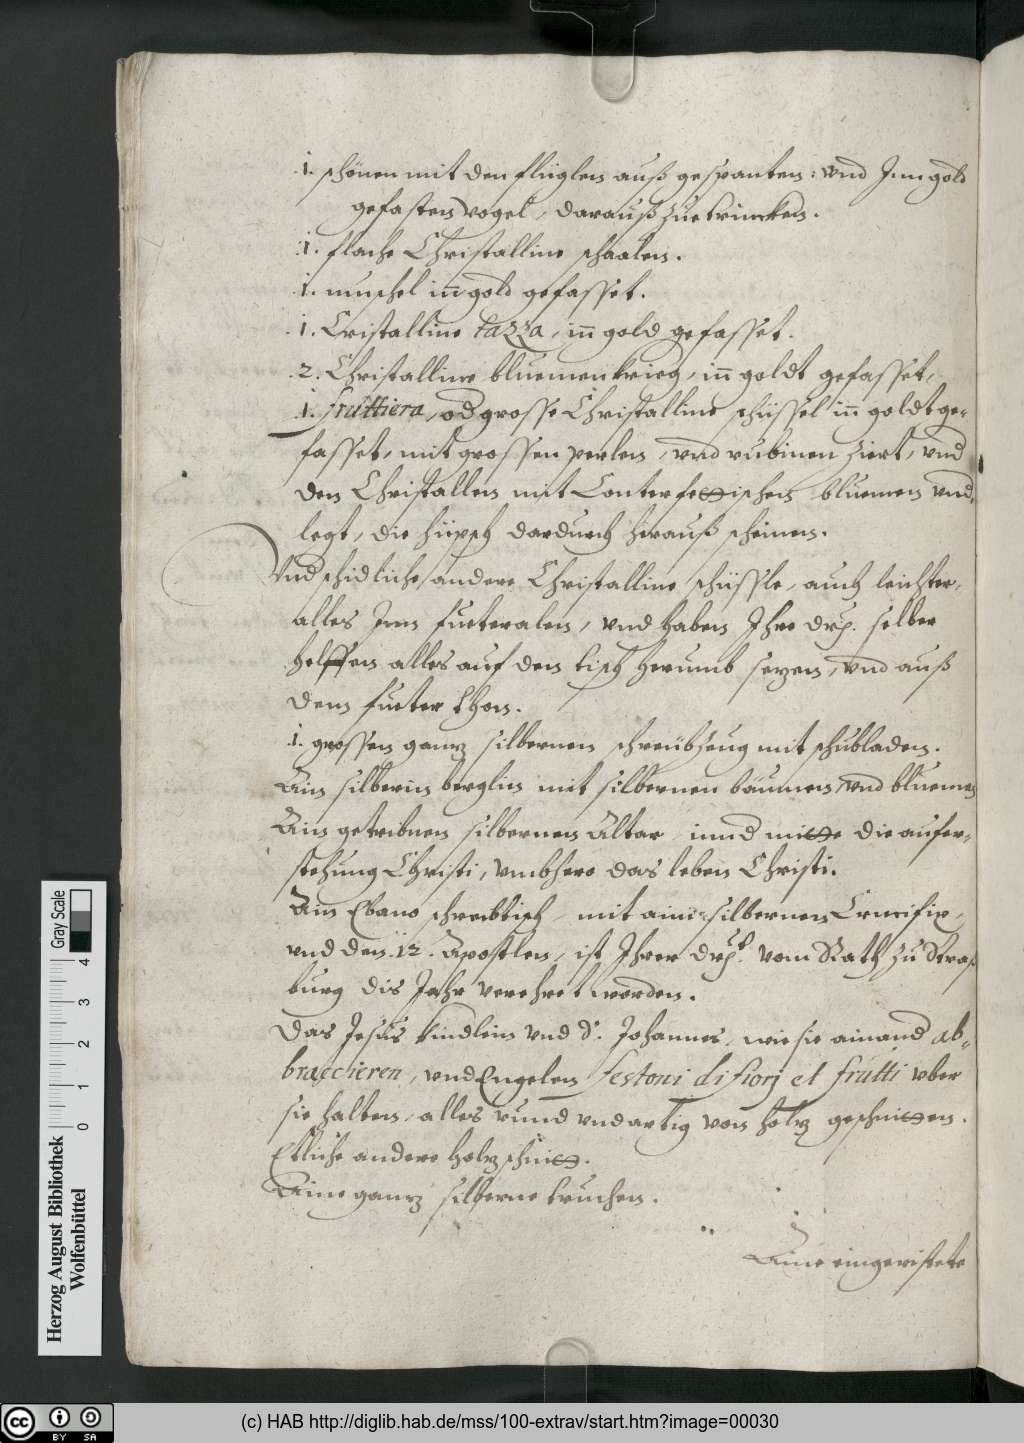 .1. schönen mit den flüglen auß gespanten: vnd Jnn gold
gefasten vogel, darauß zue trincken.
.1. flache Christalline schaalen.
.1. muschel in gold gefasset.
.1. Cristalline tazza, in gold gefasset.
.2. Christalline bluemenkrieg, in goldt gefasset,
.1. fruttiera, od grosse Christalline schüssel in goldt ge-
fasset, mit grossen perlen, vnd rubinen ziert, vnd
den Christallen mit Conterfetischen bluemen vnd
legt, die hüpsch dardurch herauß scheinen.
Vndschidliche andere Christalline schüssle, auch leichter,
alles Jnn fueteralen, vnd haben Jhre drp. selber
helffen alles auf den tisch herumb sezen, vnd auß
dem fueter thon.
.1. grossen ganz silbernen schreibzeug mit schubladen.
Ain silberin berglin mit silbernen bäumen, vnd bluemen
Ain getribnen silbernen Altar, innd mitte die aufer-
stehung Christi, vmbhero das leben Christi.
Ain Ebano schreibtisch, mit aim silbernen Crucifix,
vnd den .12. Apostlen, ist Jhrer drp. vom Rath zu Straß
burg dis Jahr verehret worden.
Das Jesus kindlein vnd S. Johannes, wie sie ainand ab-
braccieren, vnd Engelen festoni di fiorj et frutti vber
sie halten, alles rund vnd artig von holz geschnitten.
Etliche andere holzschnitt.
Aine ganz silberne truchen.
Aine eingerichtete
Herzog August Bibliothek
Wolfenbüttel
0 1 2 3 4
Gray Scale
cc BY SA
(c) HAB http://diglib.hab.de/mss/100-extrav/start.htm?image=00030